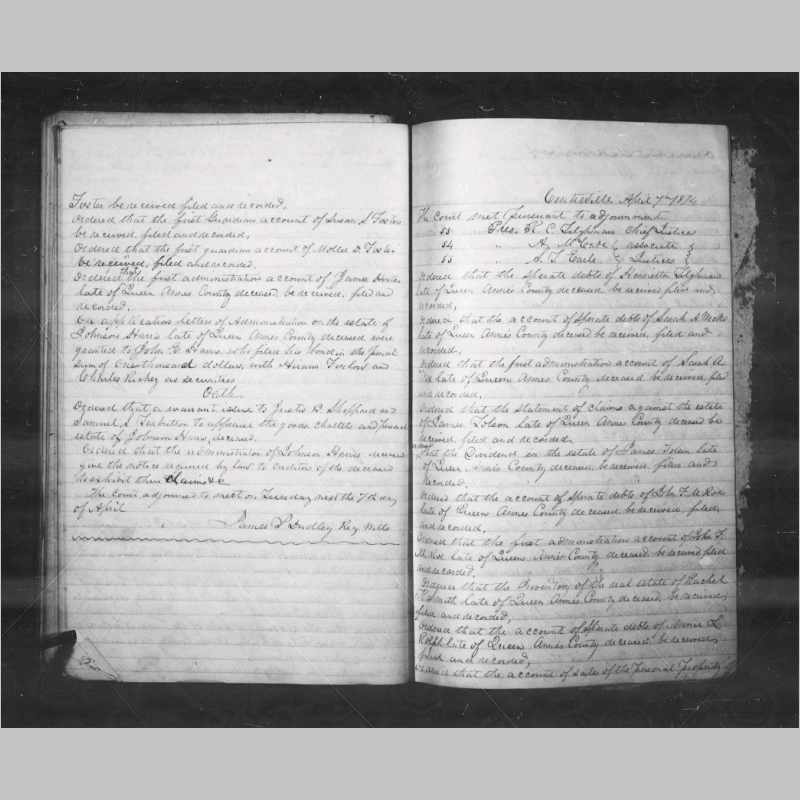 Foster be received filed and recorded.
Ordered that the first Guardian account of Susan S Foster
be received, filed and recorded,
Ordered that the first guardian account of Mollie D. Foster
be received, filed and recorded.
Ordered that the first administration account of James
late of Queen Annes County deceased, be received, filed and
recorded.
On application letters of Administration on the estate of
Johnson Harris late of Queen Annes County deceased were
granted to John H. Harris, who filed his bond in the penal
sum of One thousand dollars, with Hiram and
Charles as securities
Oath.
Ordered that a warrant issue to Justis D. Sheppard and
Samuel S. to appraise the goods chattels and personal
estate of Johnson Harris, deceased.
Ordered that the administrator of Johnson Harris, deceased
give the notice required by law to creditors of the deceased
to exhibit their Claims &c
The Court adjourned to meet on Tuesday next the 7th day
of April
James P Dudley Reg. Wills
Centreville April 7th 1874
The Court met Pursuant to adjournment
Pres. R. C. Tilghman Chief Justice
" A. McCabe } associate }
" A. L. Earle } Justices }
Ordered that the Sperate debts of Henrietta Tilghman
late of Queen Annes County deceased be received filed and
recorded,
Ordered that the account of Sperate debts of Sarah A
late of Queen Annes County deceased be received, filed and
recorded.
Ordered that the first administration account of Sarah A
late of Queen Annes County, deceased be received, filed
and recorded.
Ordered that the statement of claims against the estate
of James Tolson late of Queen Annes County deceased be
received, filed and recorded.
that the Dividend on the estate of James Tolson late
of Queen Annes County deceased, be received, filed and
Recorded.
Ordered that the account of Sperate debts of John F.
late of Queen Annes County deceased, be received, filed,
and recorded,
Ordered that the first administration account of John F.
late of Queen Annes County deceased be received filed
and recorded,
Ordered that the Inventory of the real estate of Rachel
late of Queen Annes County deceased, be received,
filed and recorded,
Ordered that the account of Sperate debts of Annie L.
Rolph late of Queen Annes County deceased, be received,
filed and recorded,
Ordered that the account of sales of the Personal Property